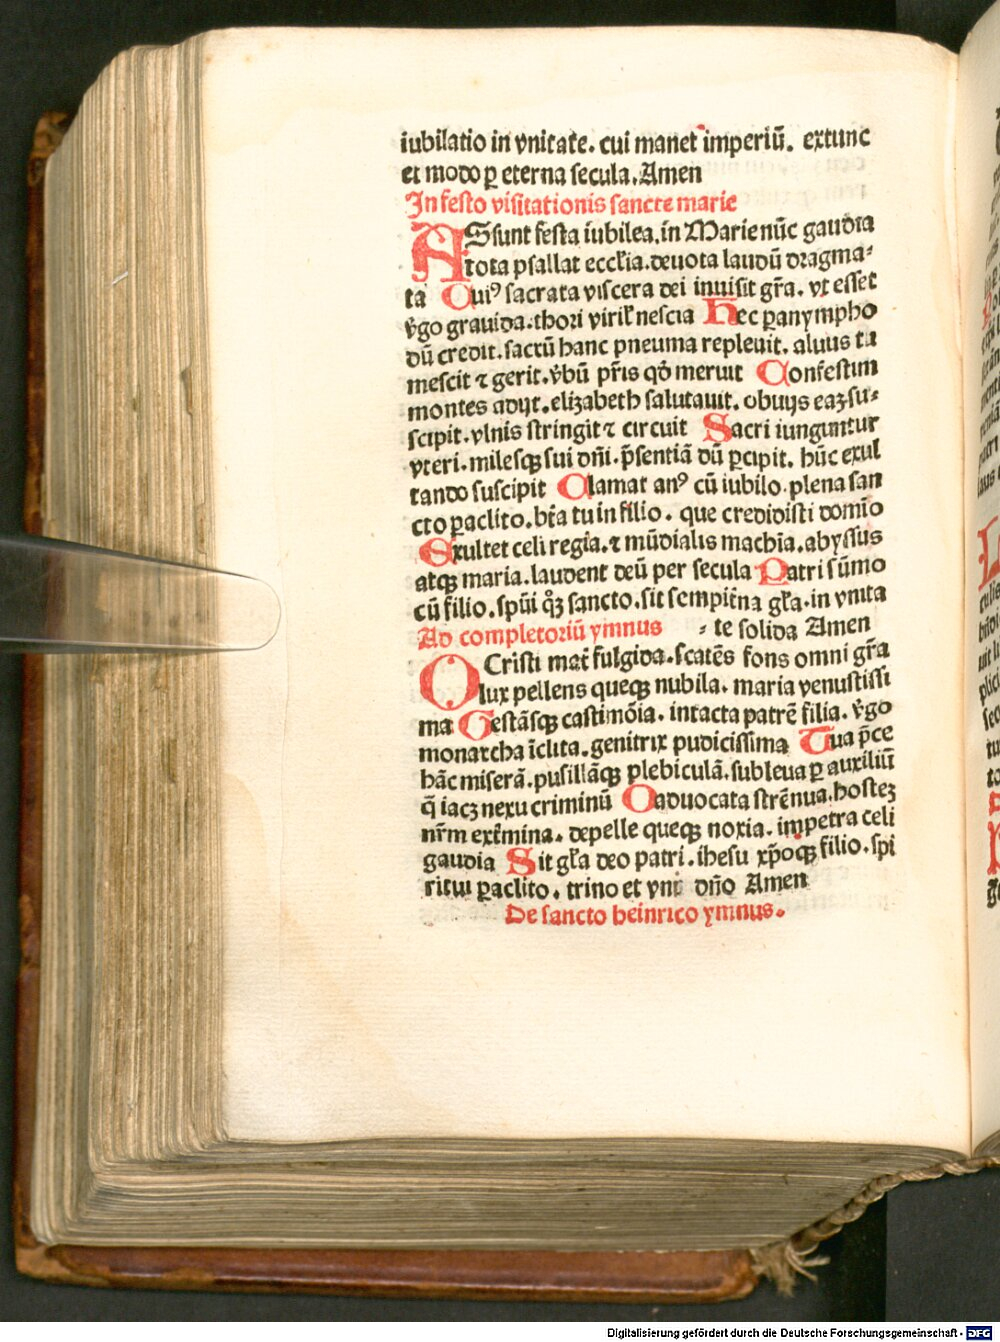 iubilatio in vnitate. cui manet imperiū. extunc
et modo ꝑ eterna secula. Amen
In festo visitationis sancte marie
ASsunt festa iubilea. in Marie nūc gaudia
tota psallat eccľia. deuota laudū dragma⸗
ta Cuiꝰ sacrata viscera dei inuisit gr̄a. vt esset
v̄go grauida. thori viril̓ nescia Hec ꝑanympho
dū credit. sacrū hanc pneuma repleuit. aluus tu
mescit ⁊ gerit. v̄bū pr̄is qd̓ meruit Confestim
montes adijt. elizabeth salutauit. obuijs eaꝫ su⸗
scipit. vlnis stringit ⁊ circuit Sacri iunguntur
vteri. milesqꝫ sui dn̄i. p̄sentiā dū ꝑcipit. hūc exul
tando suscipit Clamat anꝰ cū iubilo. plena san
cto ꝑaclito. bt̄a tu in filio. que credidisti domīo
Exultet celi regia. ⁊ mūdialis machīa. abyssus
atqꝫ maria. laudent deū per secula Patri sūmo
cū filio. spūi qꝫ̓ sancto. sit sempit̄na gľa. in vnita
Ad completoriū ymnus ⸗ te solida Amen
O Cristi mat̄ fulgida. scatēs fons omni gr̄a
lux pellens queqꝫ nubila. maria venustissi
ma Gestāsqꝫ castimōia. intacta patrē filia. v̄go
monarcha īclita. genitrix pudicissima Tua p̄ce
hāc miserā. pusillāqꝫ plebiculā. subleua ꝑ auxiliū
q̄ iacꝫ nexu criminū O aduocata strēnua. hosteꝫ
nr̄m ext̄mina. depelle queqꝫ noxia. impetra celi
gaudia Sit gľa deo patri. ihesu xp̄oqꝫ filio. spi
ritui ꝑaclito. trino et vni dn̄o Amen
De sancto heinrico ymnus.
Digitalisierung gefördert durch die Deutsche Forschungsgemeinschaft - DFG